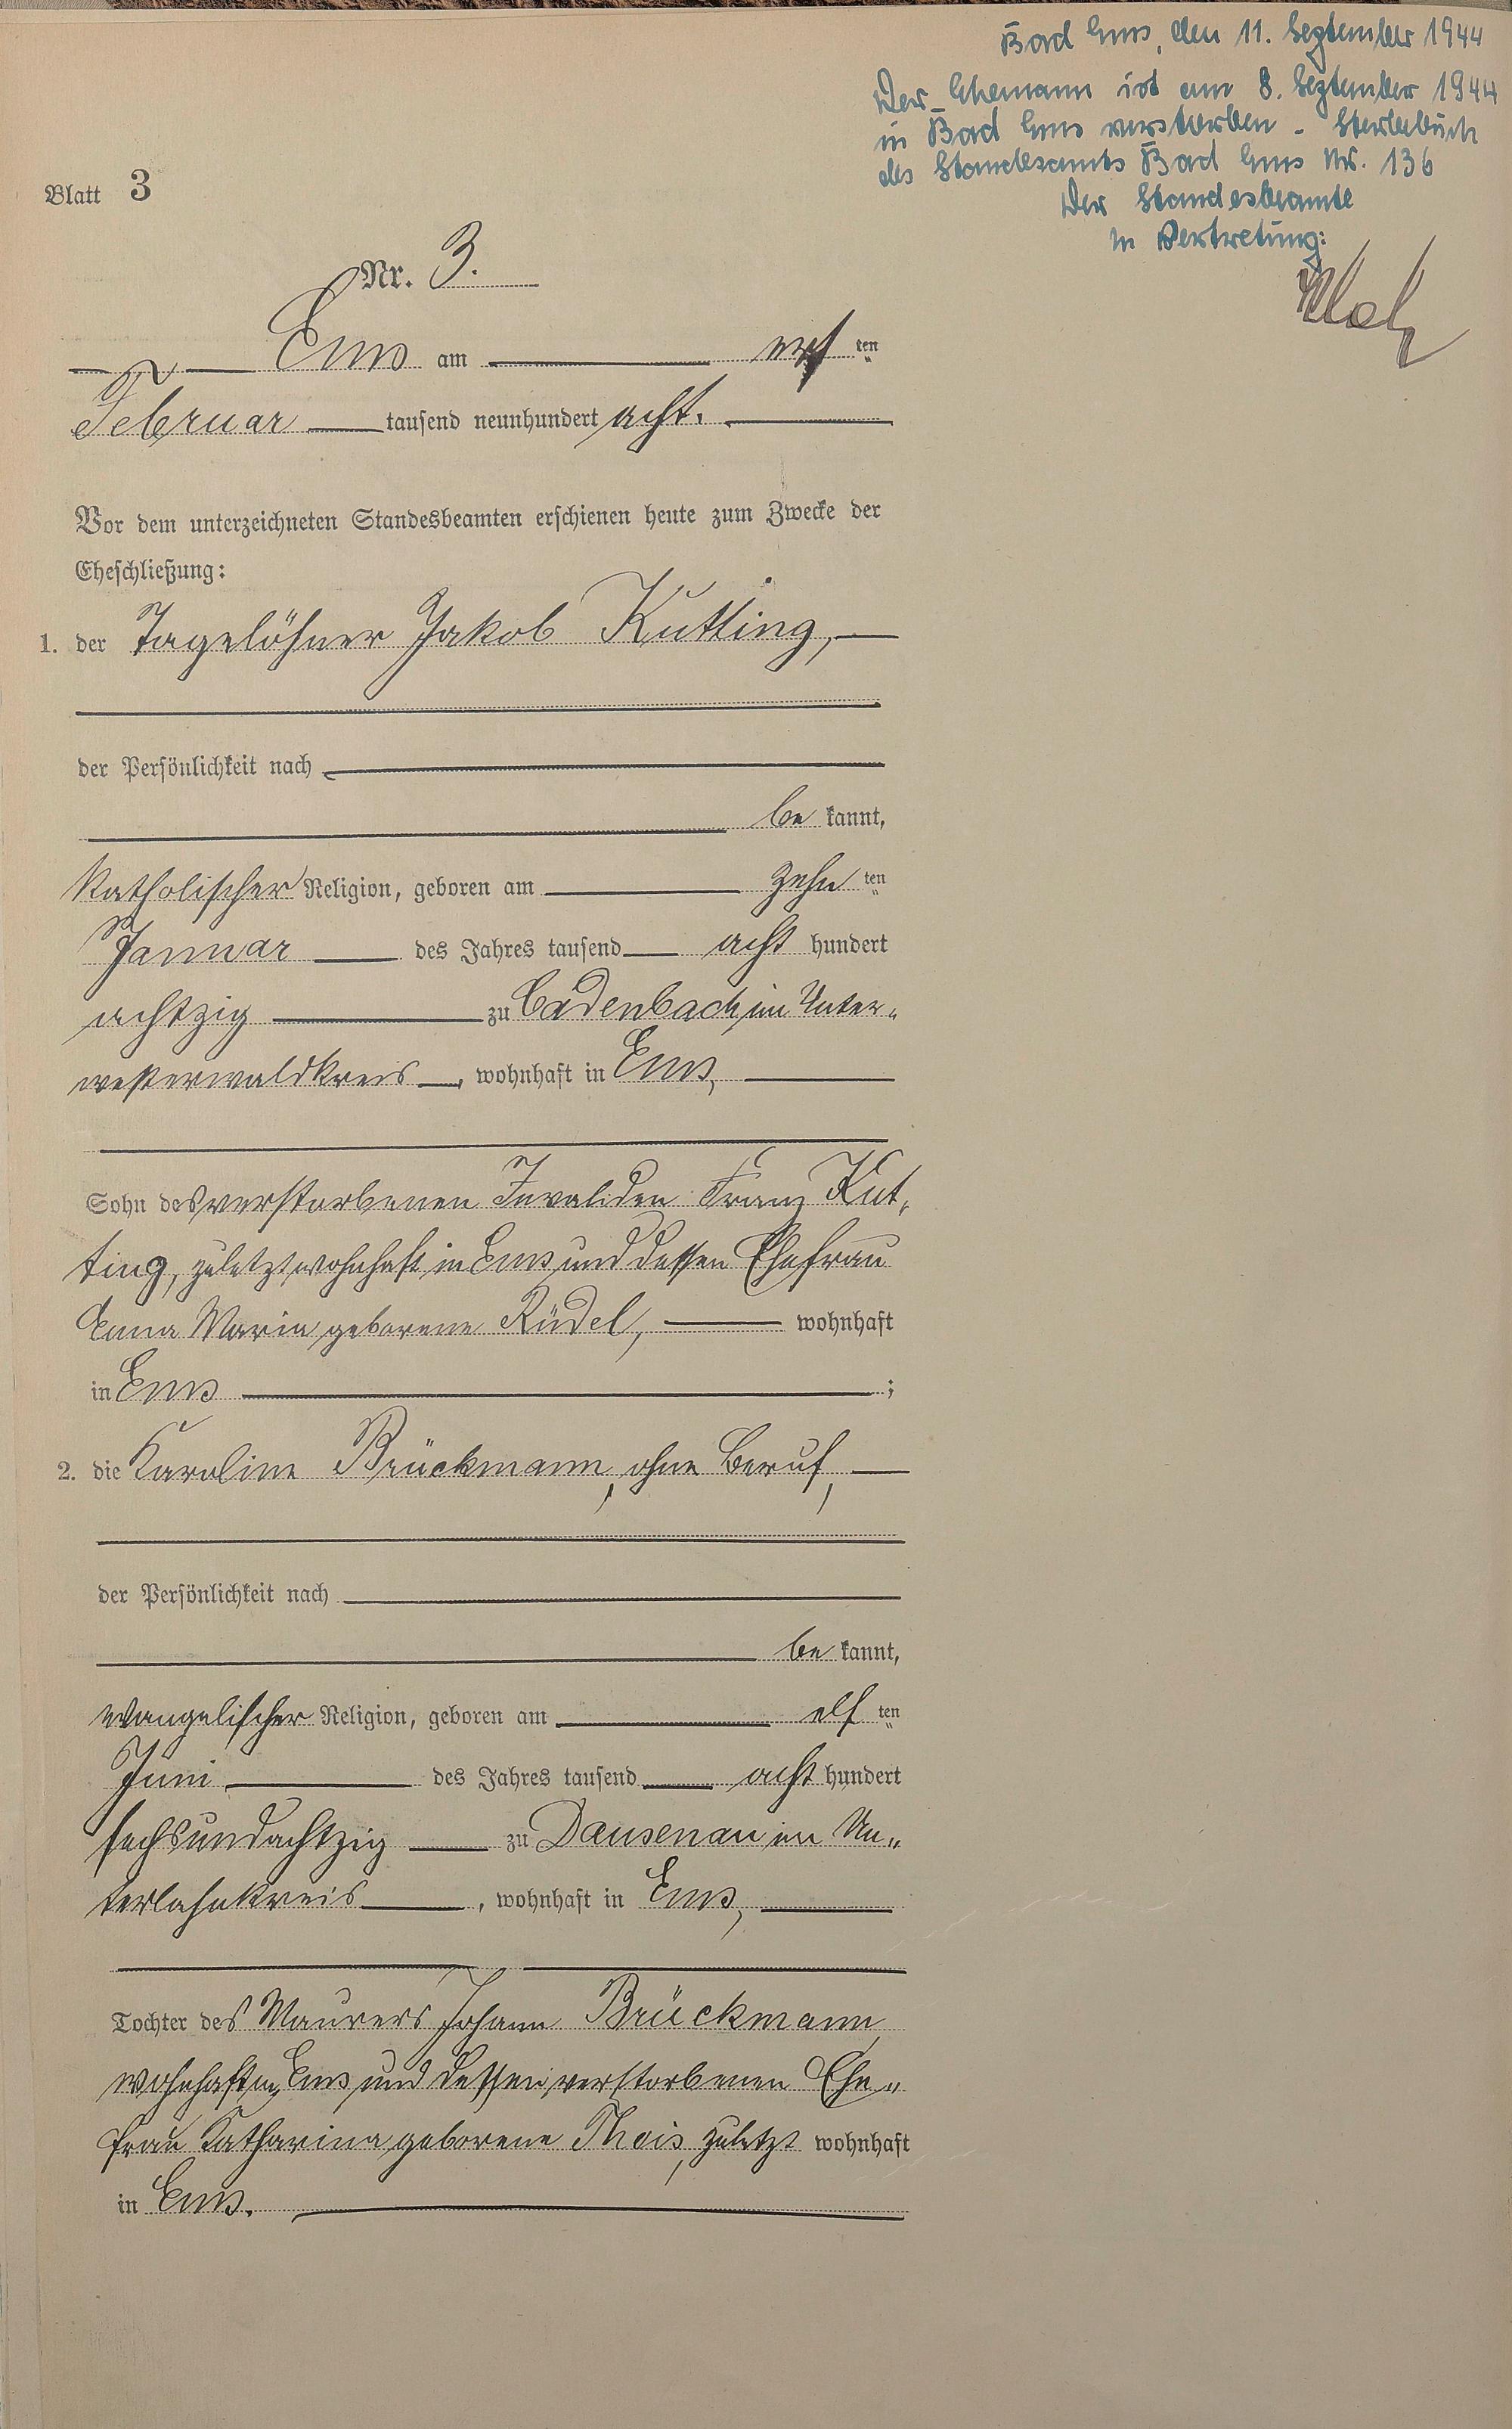 Bad Ems, den 11. September 1944
Der Ehemann ist am 8. September 1944
in Bad Ems verstorben - Sterbebuch
des Standesamts Bad Ems Nr. 136
Der Standesbeamte
In Vertretung:
Blatt 3
Nr. 3.
Ems am ersten
Februar tausend neunhundert acht.
Vor dem unterzeichneten Standesbeamten erschienen heute zum Zwecke der
Eheschließung:
1. der Tagelöhner Jakob Kutting,
der Persönlichkeit nach
be kannt,
katholischer Religion, geboren am zehn ten
Januar des Jahres tausend acht hundert
achtzig zu Cadenbach im Unter-
westerwaldkreis, wohnhaft in Ems,
Sohn des verstorbenen Invaliden Franz Kut-
ting, zuletzt wohnhaft in Ems und dessen Ehefrau
Anna Maria geborene Rüdel, wohnhaft
in Ems ;
2. die Karoline Brückmann, ohne Beruf,
der Persönlichkeit nach
be kannt,
evangelischer Religion, geboren am elf ten
Juni des Jahres tausend acht hundert
sechsundachtzig zu Dausenau im Un-
terlahnkreis , wohnhaft in Ems,
Tochter des Maurers Johann Brückmann,
wohnhaft in Ems und dessen verstorbenen Ehe-
frau Katharina geborene Theis, zuletzt wohnhaft
in Ems.